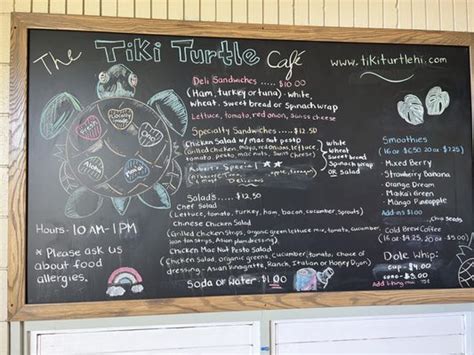 The Tiki Turtle Café
www.tikiturtlehi.com
Deli Sandwiches ..... $10.00
(Ham, turkey or tuna) - white,
wheat, sweet bread or Spinach wrap
Lettuce, tomato, red onion, Swiss cheese
Specialty Sandwiches .... $12.50
Chicken Salad w/ mac nut pesto
(Grilled chicken, mayo, red onions, lettuce,
tomato, pesto, mac nuts, Swiss Cheese)
white
wheat
Sweet bread
Spinach wrap
OR Salad
Special
Delicious
Salads ..... $12.50
Chef Salad
(Lettuce, tomato, turkey, ham, bacon, cucumber, sprouts)
Chinese Chicken Salad
(Grilled Chicken Strips, organic green lettuce mix, cucumber,
won ton strips, Asian dressing)
Chicken Mac Nut Pesto Salad
(Chicken Salad, organic greens, cucumber, tomato, choice of
dressing - Asian Vinaigrette, Ranch, Italian or Honey Dijon)
Soda or Water $1.00
Hours - 10 AM - 1 PM
* Please ask us
about food
allergies.
Smoothies
(16 oz $6.50 20 oz $7.25)
- Mixed Berry
- Strawberry Banana
- Orange Dream
- Makai Green
- Mango Pineapple
Add-ins $1.00
Chia Seeds
Cold Brew Coffee
(16 oz $4.25, 20 oz $5.00)
Dole Whip:
- cup - $4.00
- cone - $5.00